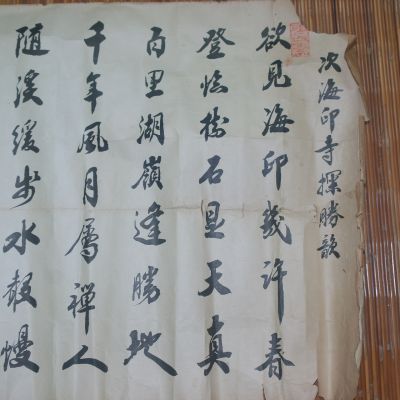 次海印寺探勝韻
欲見海印幾許春
登臨樹石盡天真
百里湖嶺逢勝地
千年風月屬禪人
随溪緩步水聲慢